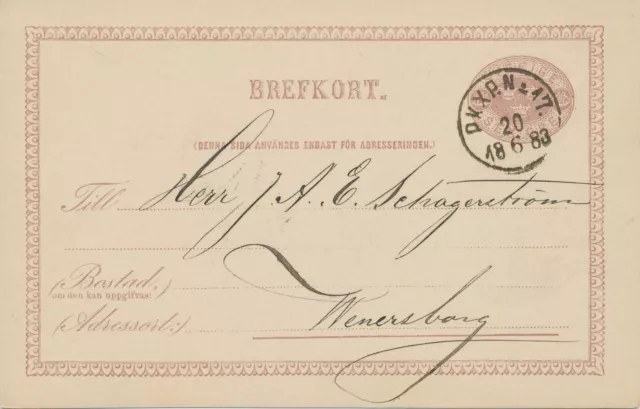 BREFKORT.
P.K.X.P. No 17.
20
18 6 83
(DENNA SIDA ANVÄNDES ENDAST FÖR ADRESSERINGEN.)
Till Herr J. A. E. Schagerström
(Bostad.)
om den kan uppgifvas:
(Adressort:) Wenersborg